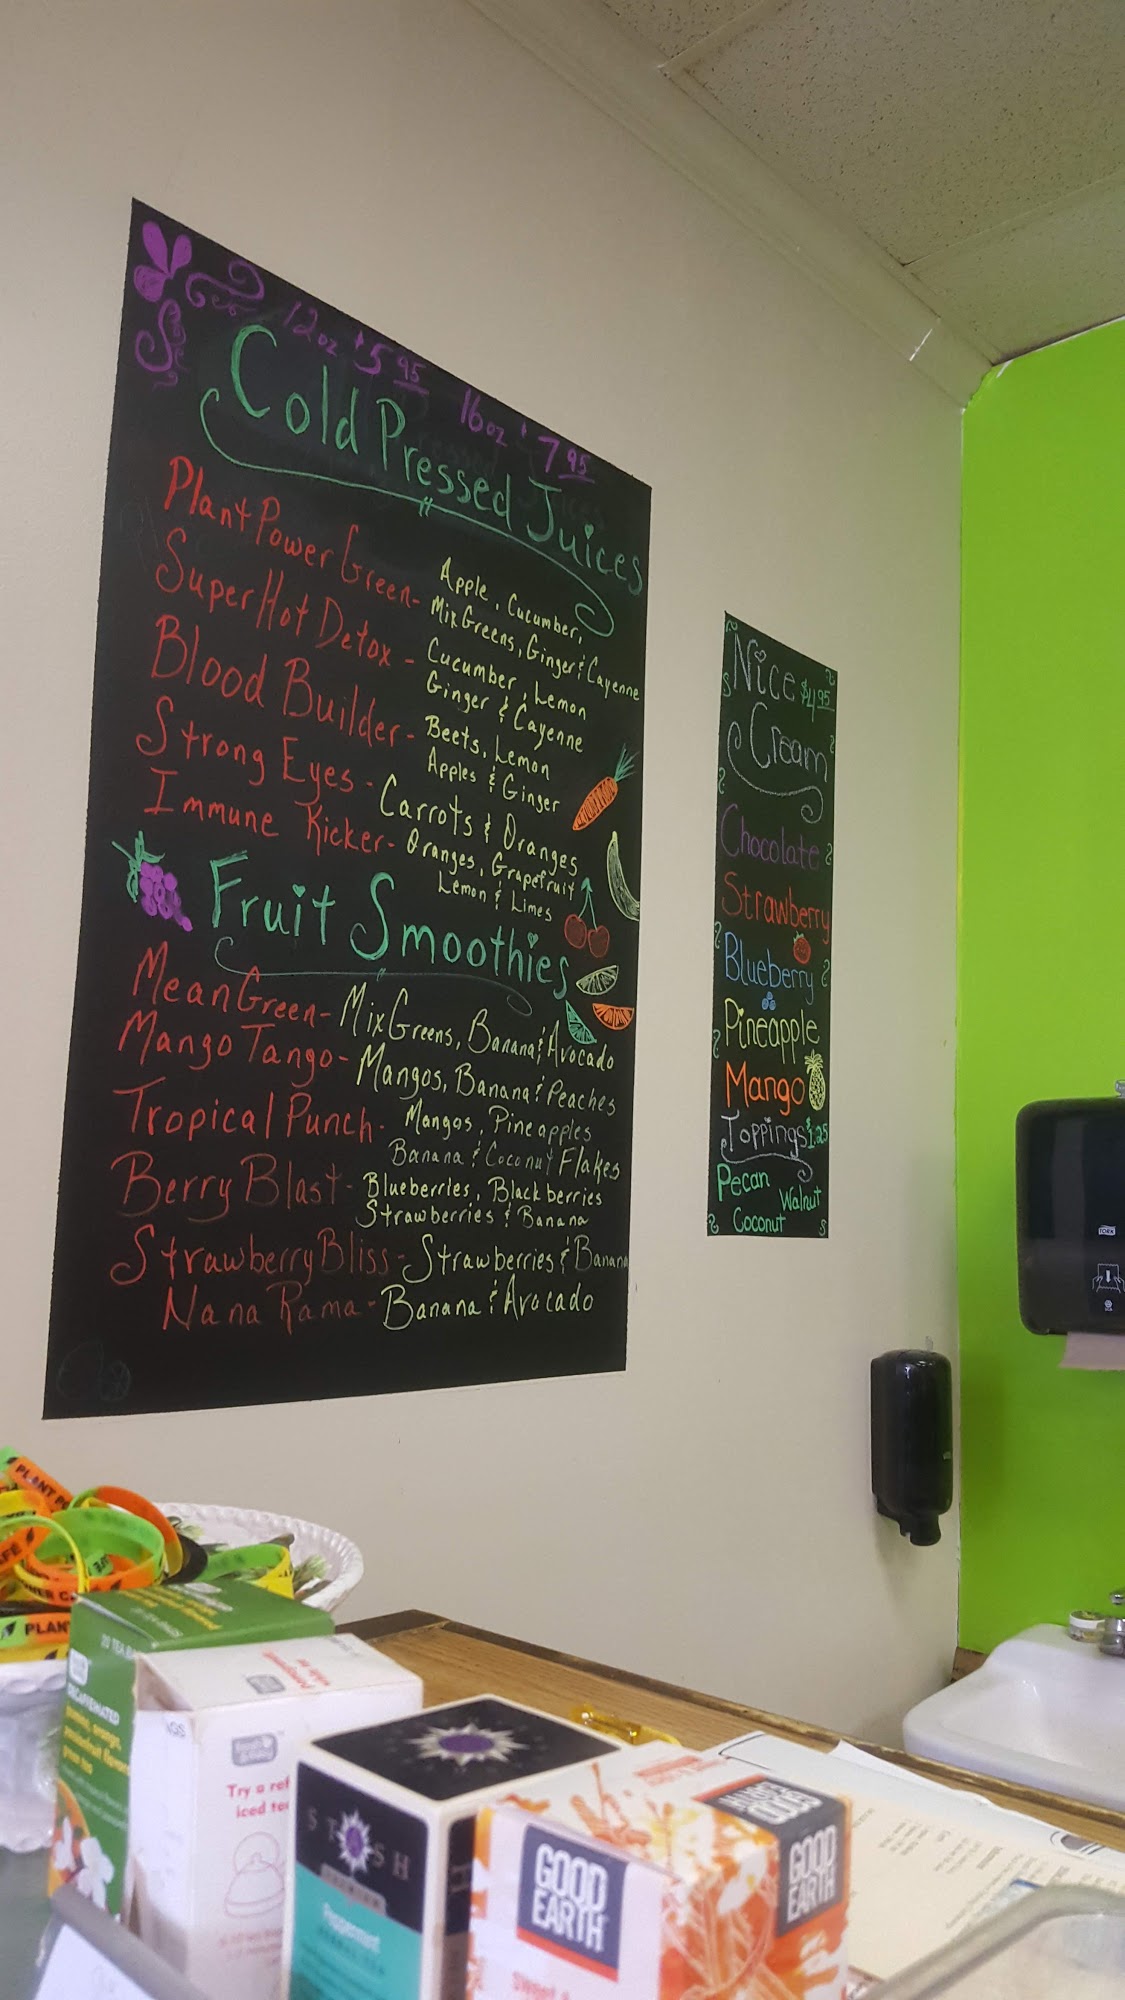 12oz $5.95 16oz $7.95
Cold Pressed Juices
Plant Power Green- Apple, Cucumber,
Mix Greens, Ginger & Cayenne
Super Hot Detox - Cucumber, Lemon
Ginger & Cayenne
Blood Builder- Beets, Lemon
Apples & Ginger
Strong Eyes - Carrots & Oranges
Immune Kicker- Oranges, Grapefruit
Lemon & Limes
Fruit Smoothies
Mean Green- Mix Greens, Banana & Avocado
Mango Tango- Mangos, Banana & Peaches
Tropical Punch- Mangos, Pineapples
Banana & Coconut Flakes
Berry Blast- Blueberries, Blackberries
Strawberries & Banana
Strawberry Bliss- Strawberries & Banana
Nana Rama- Banana & Avocado
Nice $4.95
Cream
Chocolate
Strawberry
Blueberry
Pineapple
Mango
Toppings $1.25
Pecan
Walnut
Coconut
TORK
PLANT PO
PLANT
20 TEA BA
DECAFFEINATED
green tea
Try a
iced tea
STASH
PREMIUM
Peppermint
GOOD
EARTH
GOOD
EARTH
GOOD
EARTH
sweet &